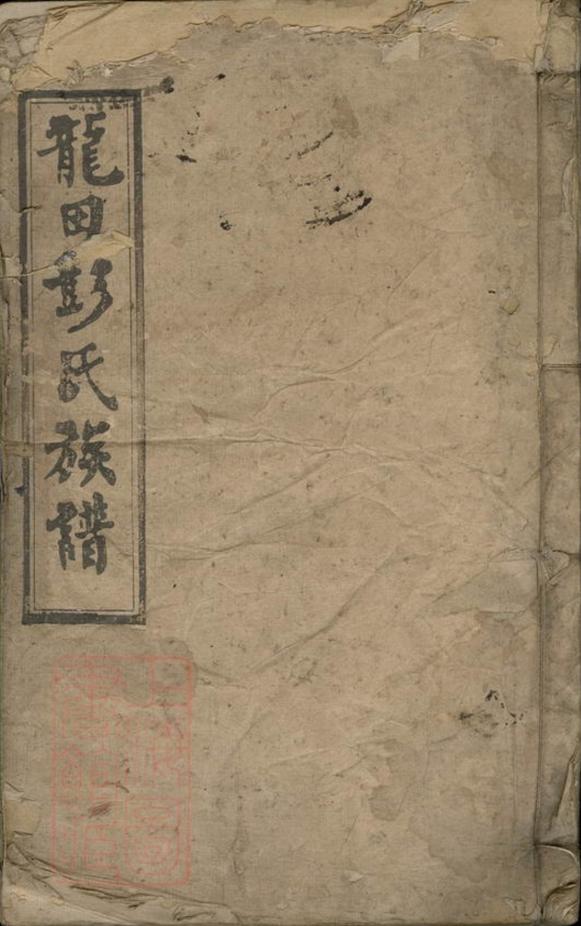 龍田彭氏族譜